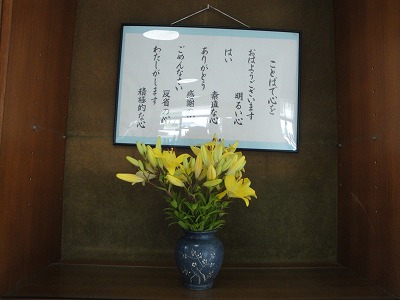 ことばで心を
おはようございます
明るい心
はい
素直な心
ありがとう
感謝の
ごめんなさい
反省の心
わたしがします
積極的な心